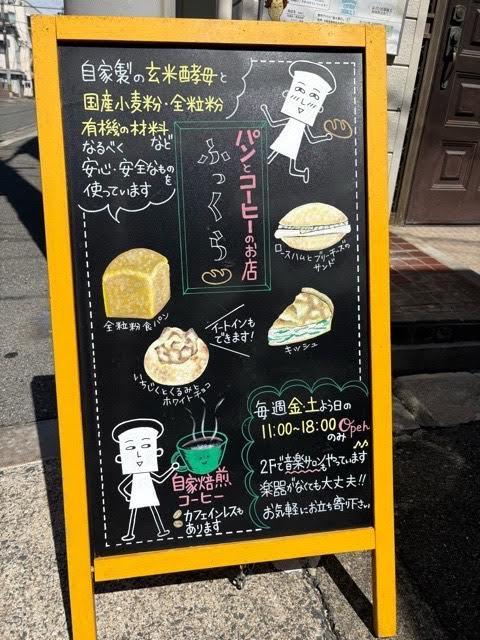 自家製の玄米酵母と
国産小麦粉・全粒粉
有機の材料など
なるべく
安心・安全なものを
使っています
パンとコーヒーのお店
ふっくら
ロースハムとブリーチーズの
サンド
全粒粉食パン
イートインも
できます!
キッシュ
いちじくとくるみと
ホワイトチョコ
自家焙煎
コーヒー
カフェインレスも
あります
毎週金・土よう日の
11:00~18:00 Open
のみ
2Fで音楽サロンもやっています
楽器がなくても大丈夫!!
お気軽にお立ち寄り下さい